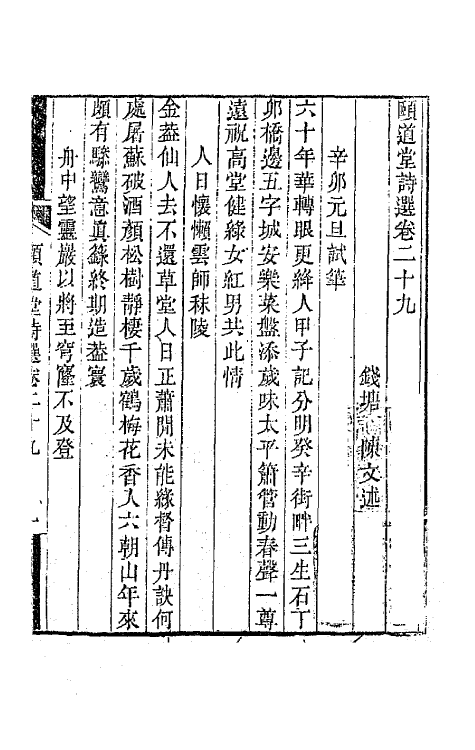 頤道堂詩選卷二十九
錢塘陳文述
辛卯元旦試筆
六十年華轉眼更絳人甲子記分明癸辛街畔三生石丁
卯橋邊五字城安樂菜盤添歲味太平簫管動春聲一尊
遠祝高堂健綠女紅男共此情
人日懷懶雲師秣陵
金葢仙人去不還草堂人日正蕭閒未能緣督傳丹訣何
處屠蘇破酒顏松樹靜棲千歲鶴梅花香入六朝山年來
頗有驂鸞意眞籙終期造葢寰
舟中望靈巖以將至穹窿不及登
頤道堂詩選卷二十九
一